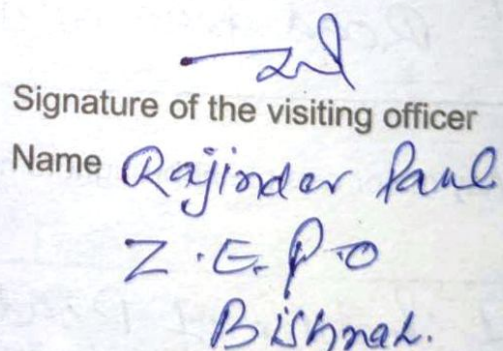 Signature of the visiting officer
Name Rajinder Paul
Z.E.P.O
Bishnah.